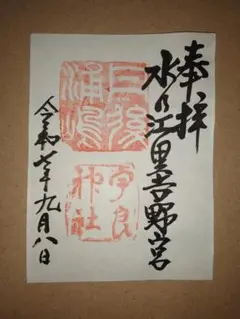 奉拝
水乃江里吉野宮
丹後
浦嶋
宇良
神社
令和七年九月八日